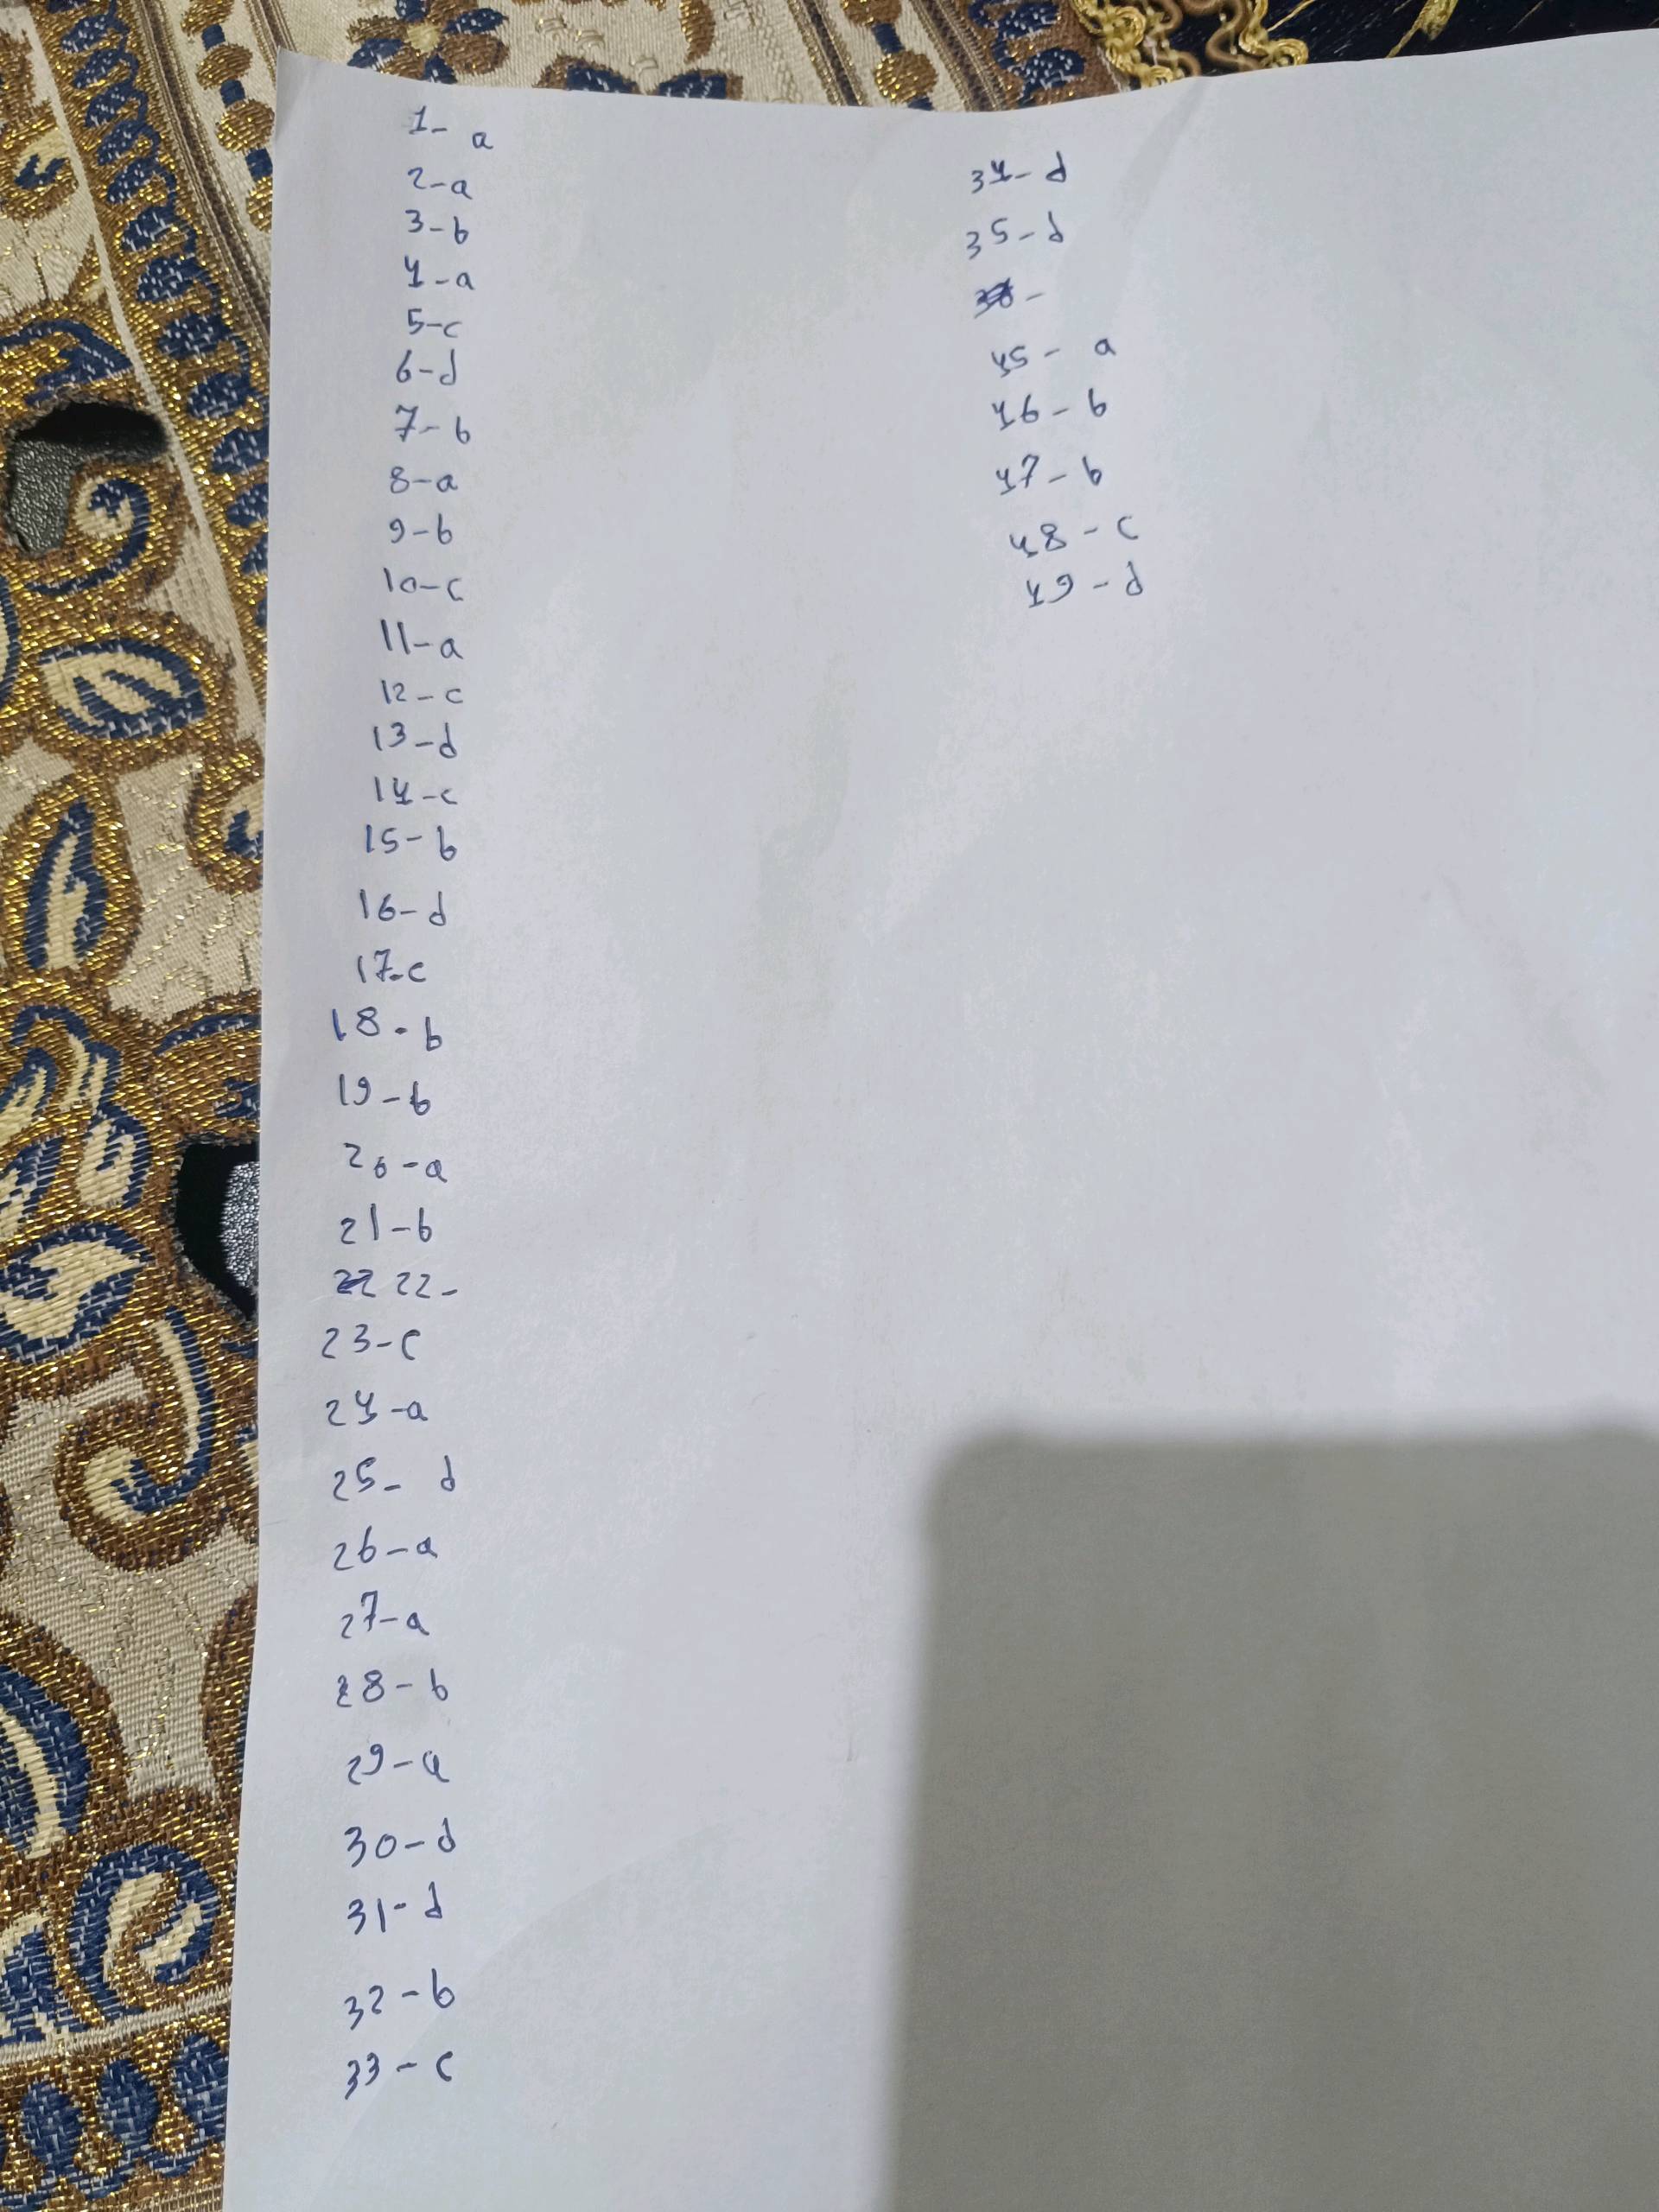 1- a
2-a
3-b
4-a
5-c
6-d
7-b
8-a
9-b
10-c
11-a
12-c
13-d
14-c
15-b
16-d
17-c
18-b
19-b
20-a
21-b
22 22-
23-c
24-a
25- d
26-a
27-a
28-b
29-a
30-d
31-d
32-b
33-c
34-d
35-d
-
45- a
46-b
47-b
48-c
49-d